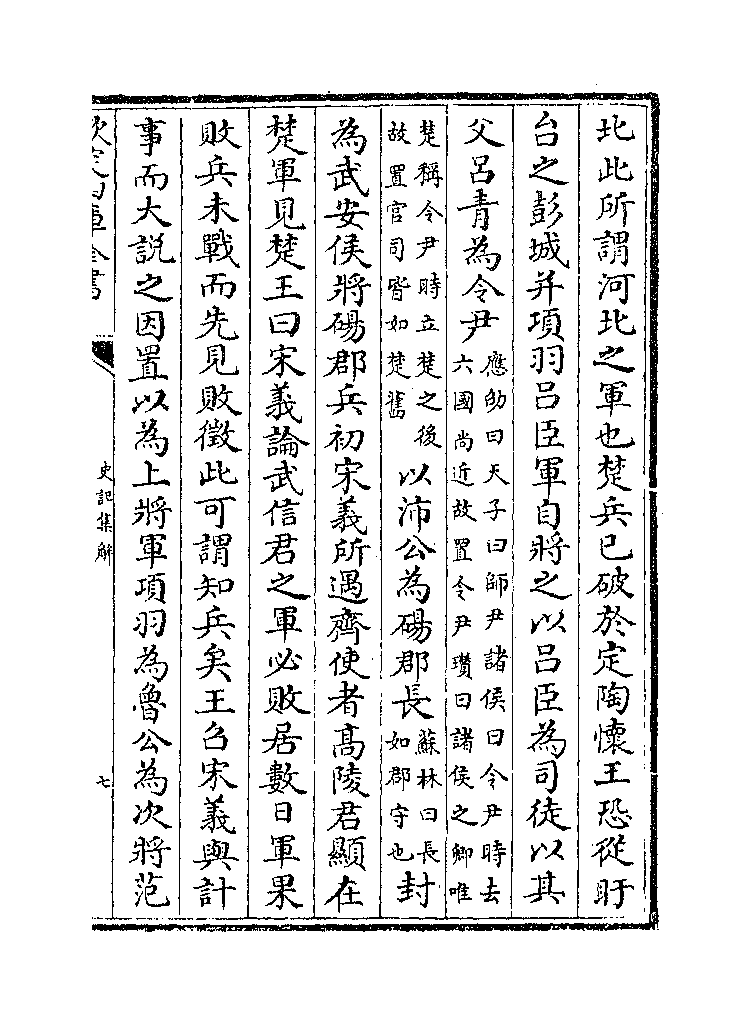 北此所謂河北之軍也楚兵已破於定陶懷王恐從盱
台之彭城并項羽吕臣軍自將之以吕臣為司徒以其
父吕青為令尹應劭曰天子曰師尹諸侯曰令尹時去六國尚近故置令尹瓚曰諸侯之卿唯
楚稱令尹時立楚之後故置官司皆如楚舊以沛公為碭郡長蘇林曰長如郡守也封
為武安侯將碭郡兵初宋義所遇齊使者髙陵君顯在
楚軍見楚王曰宋義論武信君之軍必敗居數日軍果
敗兵未戰而先見敗徵此可謂知兵矣王召宋義與計
事而大説之因置以為上將軍項羽為魯公為次將范
欽定四庫全書
史記集解
七